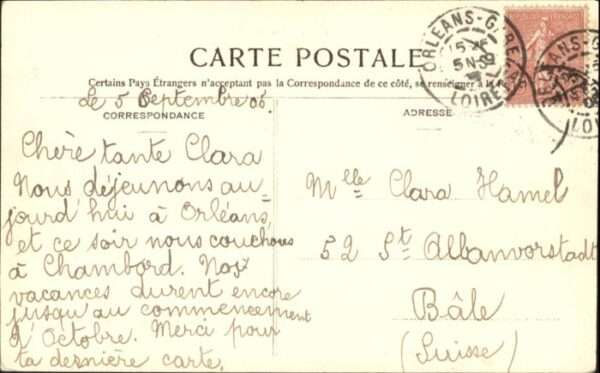 CARTE POSTALE
Certains Pays Étrangers n'acceptant pas la Correspondance de ce côté, se renseigner à la
Le 5 Septembre 06.
CORRESPONDANCE
Chère tante Clara
Nous déjeunons au=
jourd'hui à Orléans,
et ce soir nous couchons
à Chambord. Nos
vacances durent encore
jusqu'au commencement
d'Octobre. Merci pour
ta dernière carte.
ADRESSE
Mlle Clara Hamel
52 St. Albanvorstadt
Bâle
(Suisse)
ORLEANS-GARE
LOIRET